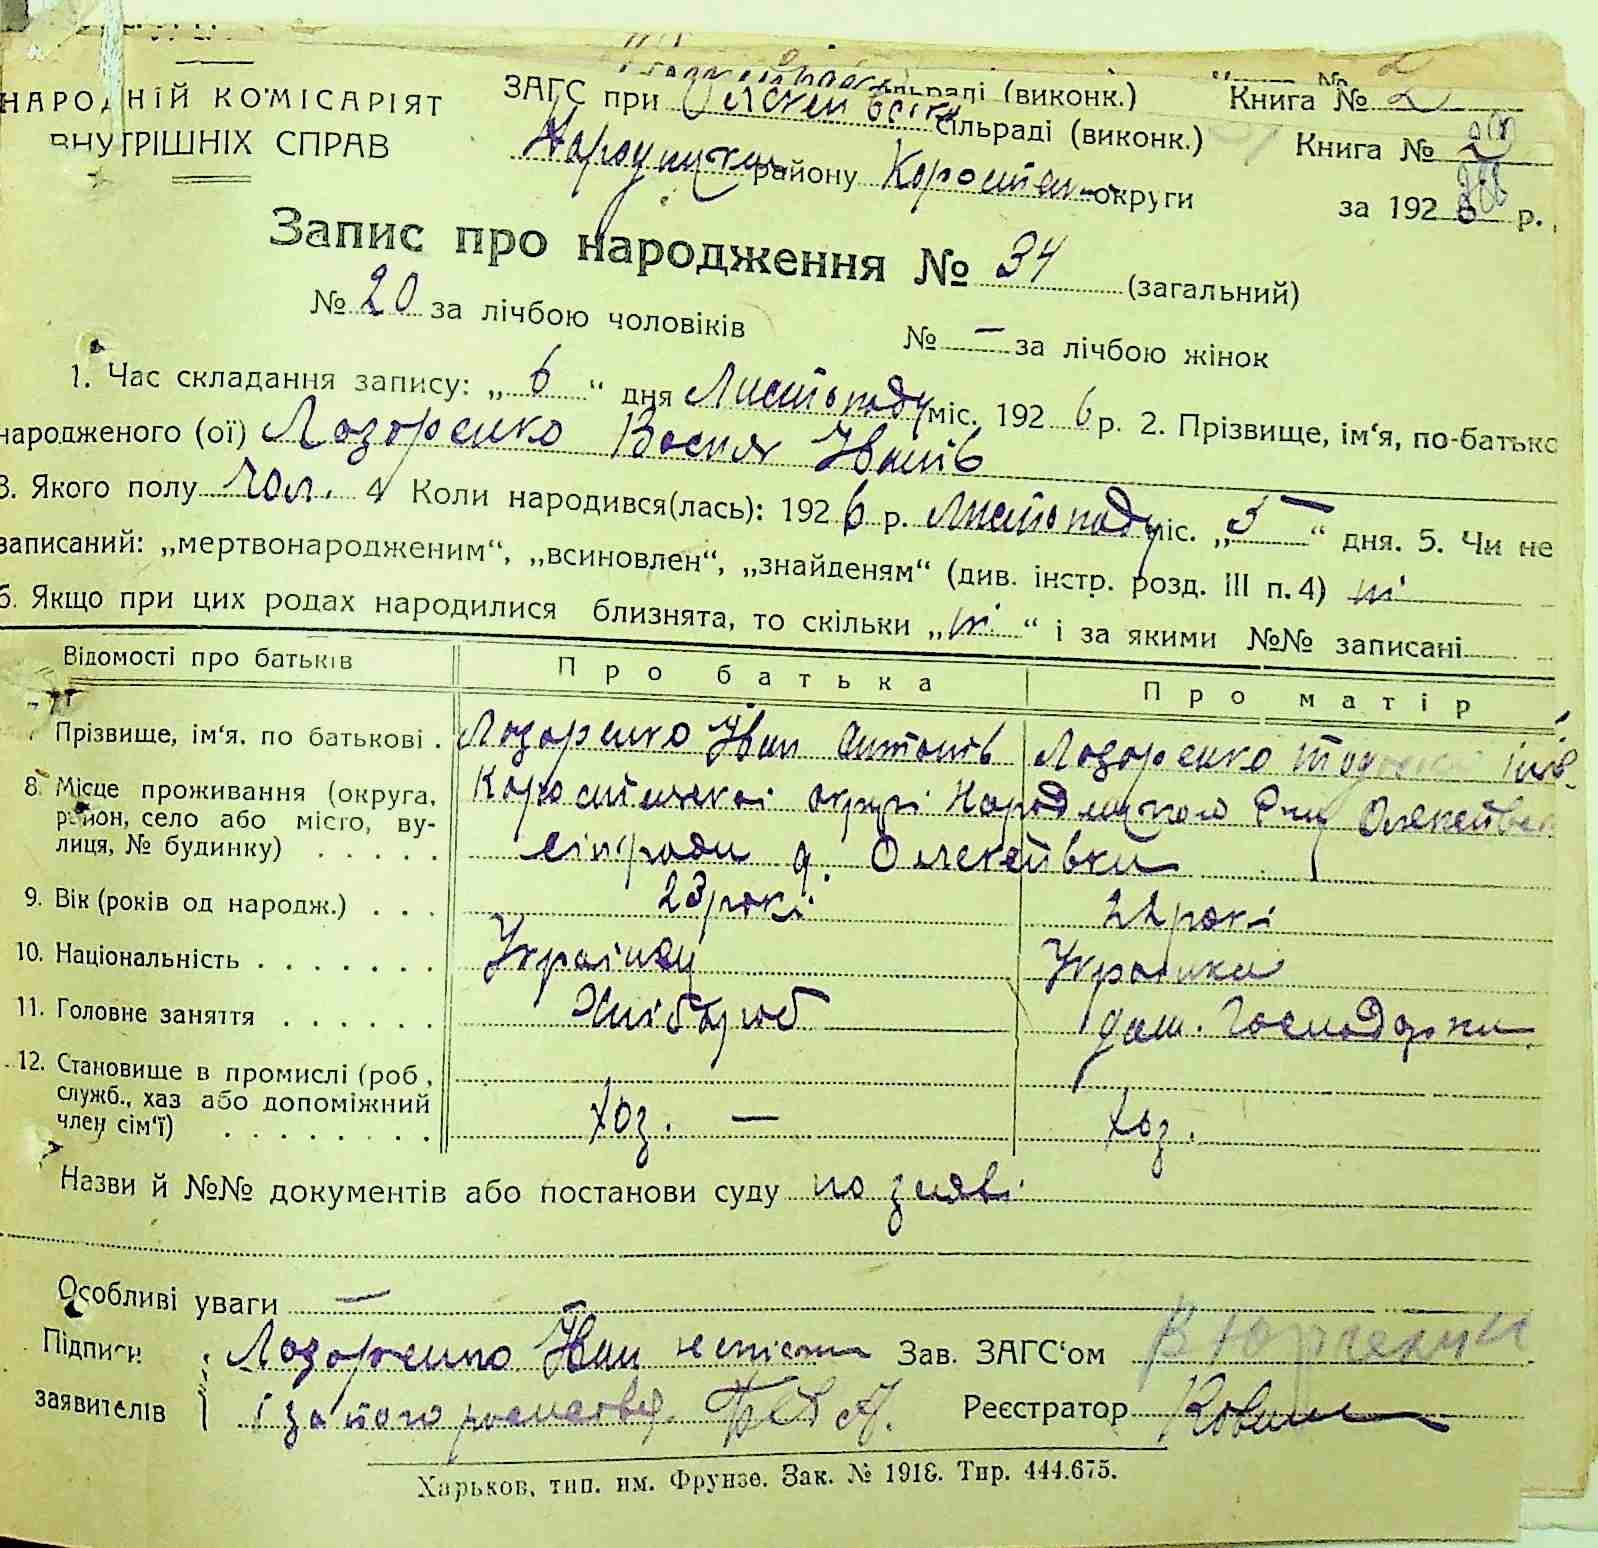 НАРОДНІЙ КОМІСАРІЯТ
ВНУТРІШНІХ СПРАВ
сільраді (виконк.) Книга № 2
ЗАГС при сільраді (виконк.) Книга №
району Коростен округи за 192 р.
Запис про народження № 34 (загальний)
№ 20 за лічбою чоловіків № — за лічбою жінок
1. Час складання запису: „ 6 “ дня Листопаду міс. 192 6 р. 2. Прізвище, ім‘я, по-батько
народженого (ої) Лозоренко Іванів
3. Якого полу чол. 4 Коли народився(лась): 192 6 р. Листопаду міс. „ 5 “ дня. 5. Чи не
записаний: „мертвонародженим“, „всиновлен“, „знайденям“ (див. інстр. розд. III п. 4) ні
6. Якщо при цих родах народилися близнята, то скільки „ ні “ і за якими №№ записані
Відомості про батьків Про батька Про матір
Прізвище, ім‘я. по батькові . Лозоренко Іван Антонів Лозоренко
8. Місце проживання (округа, район, село або місто, вулиця, № будинку) . . . . .
Коростенської округи
сільради
9. Вік (років од народж.) . . . 23 рокі 22 рокі
10. Національність . . . . . . .
11. Головне заняття . . . . . . Хлібороб дом. Господарка
12. Становище в промислі (роб, служб., хаз або допоміжний член сім‘ї) . . . . . . . . хоз. — хоз.
Назви й №№ документів або постанови суду по заяві
Особливі уваги —
Підписи Лозоренко Іван Зав. ЗАГС‘ом
заявителів і за його Реєстратор
Харьков, тип. им. Фрунзе. Зак. № 1918. Тир. 444.675.